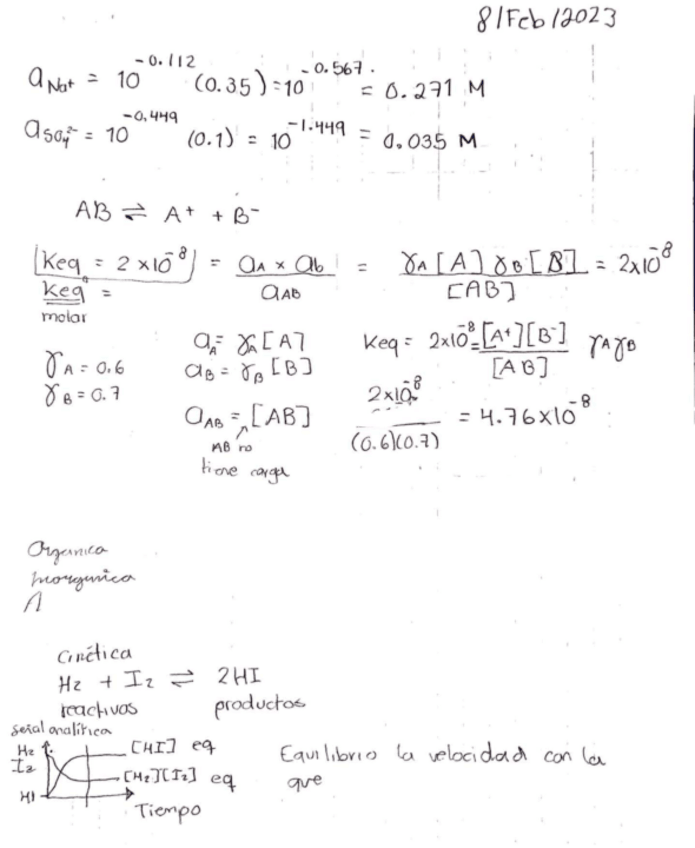 8/Feb/2023
a Na+ = 10^-0.112 (0.35) = 10^-0.567. = 0.271 M
a SO4^2- = 10^-0,449 (0.1) = 10^-1.449 = 0.035 M
AB ⇌ A+ + B-
Keq = 2 x10^-8 = aA x ab / aAB = γA [A] γB [B] / [AB] = 2x10^-8
Keq =
molar
γA = 0.6
γB = 0.7
aA = γA [A]
aB = γB [B]
aAB = [AB]
AB no
tiene carga
Keq = 2x10^-8 = [A+][B-] / [AB] γAγB
2x10^-8 / (0.6)(0.7) = 4.76x10^-8
Organica
Inorganica
Cinética
H2 + I2 ⇌ 2HI
reactivos productos
señal analítica
H2
I2
HI
[HI] eq
[H2][I2] eq
Tiempo
Equilibrio la velocidad con la
que